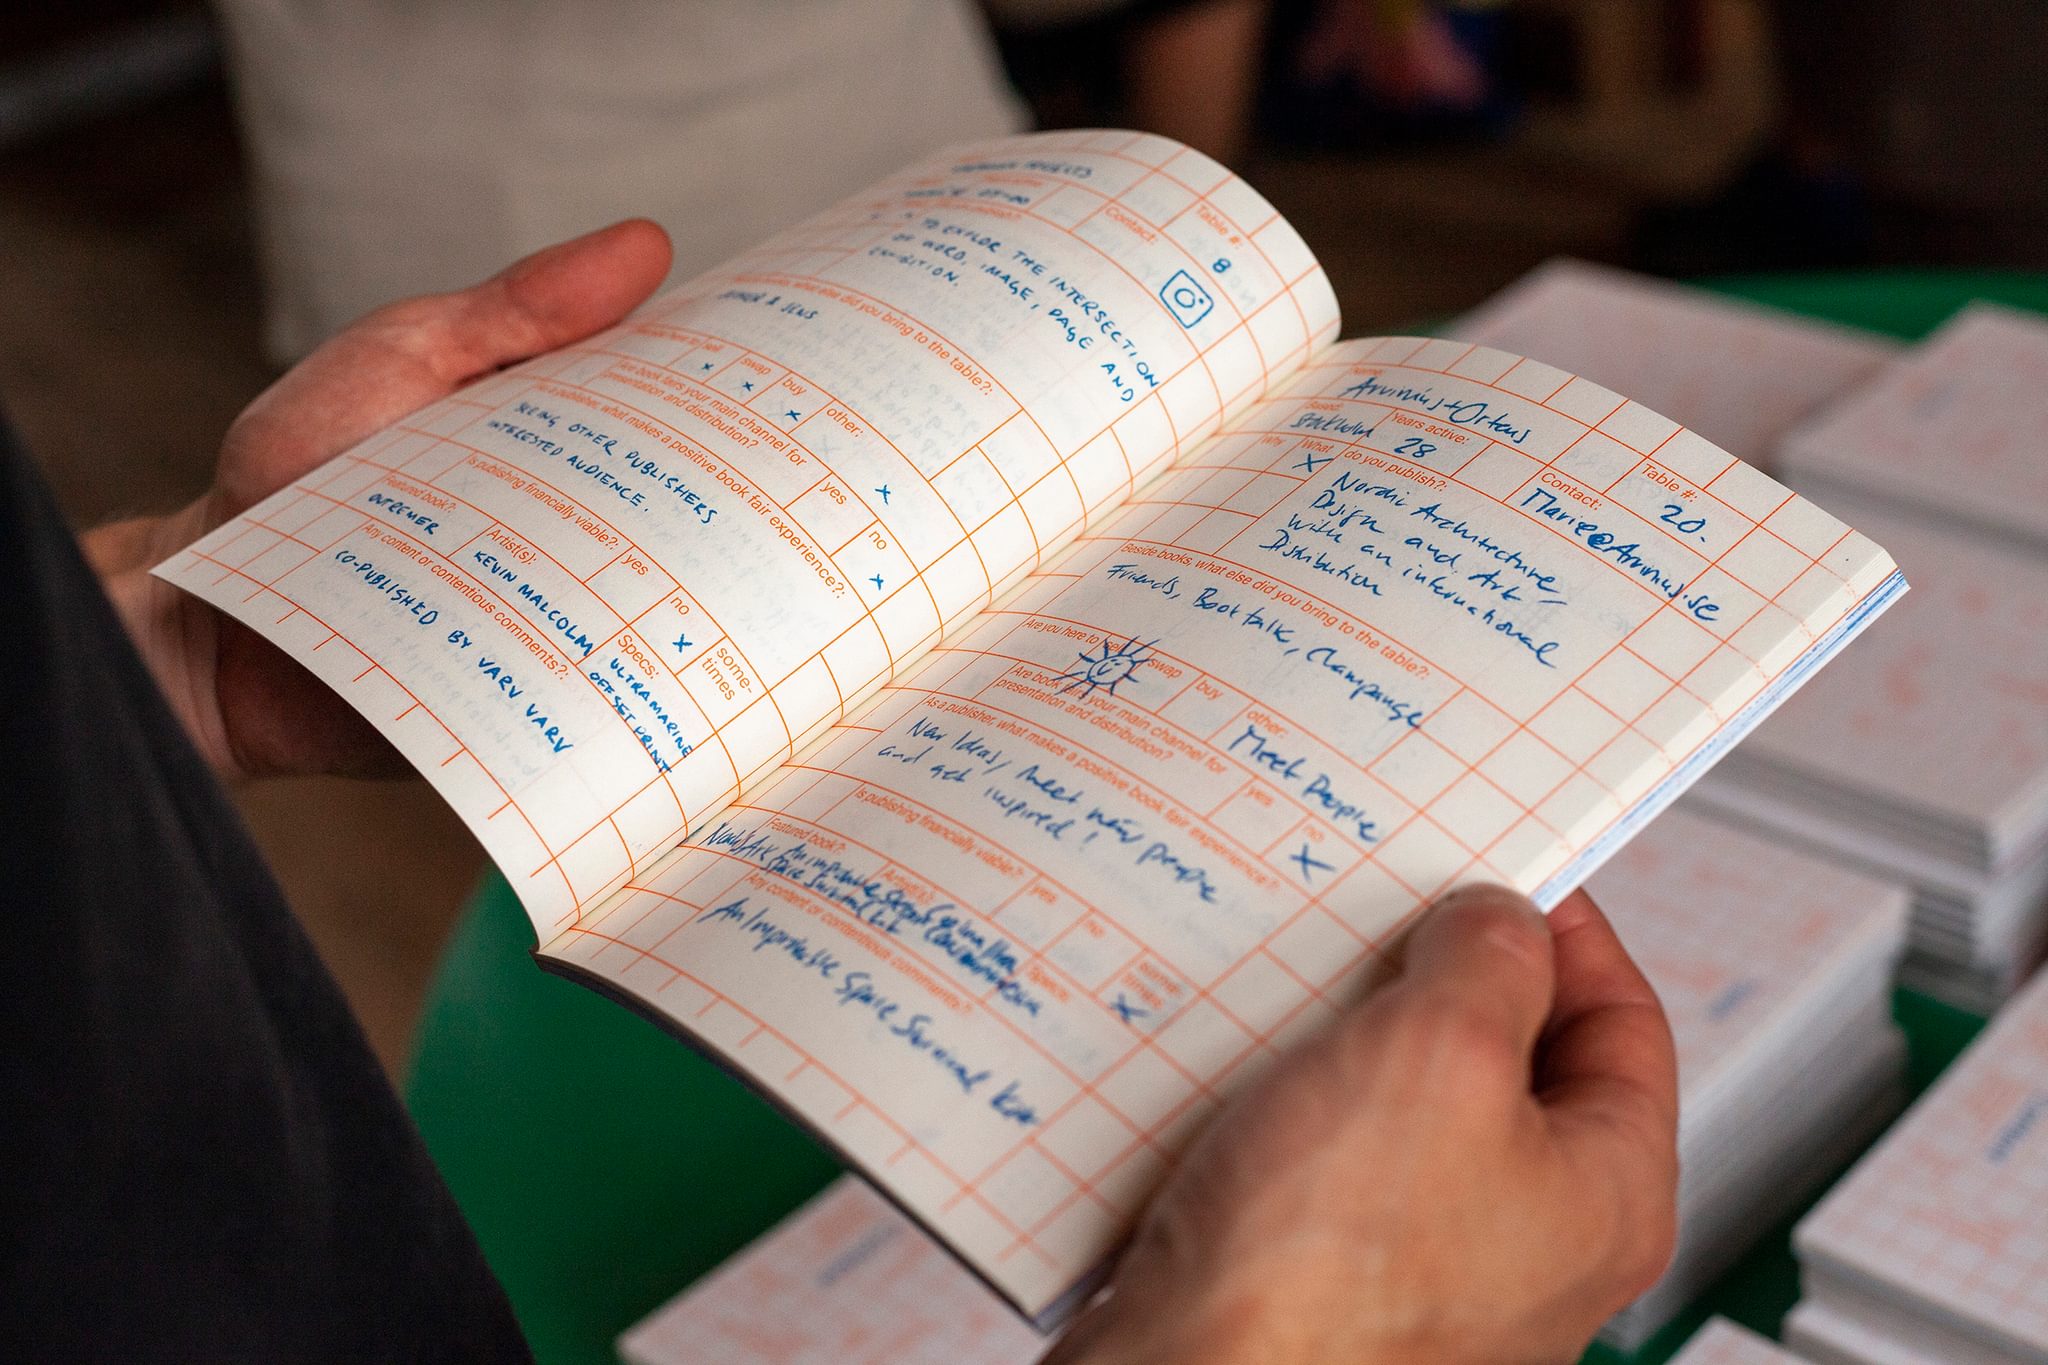 Table #:
8
Contact:
TO EXPLOR THE INTERSECTION
OF WORD, IMAGE, PAGE AND
EXHIBITION.
what else did you bring to the table?:
& JENS
sell
swap
buy
other:
x
x
x
x
Are book fairs your main channel for
presentation and distribution?
yes
no
x
As a publisher, what makes a positive book fair experience?:
SEEING OTHER PUBLISHERS.
INTERESTED AUDIENCE.
Is publishing financially viable?:
yes
no
x
some-
times
Featured book?:
OUTREMER
Artist(s):
KEVIN MALCOLM
Specs:
ULTRAMARINE
OFFSET PRINT
Any content or contentious comments?:
CO-PUBLISHED BY VARV VARV
Name:
Arvinius+Orfeus
Based:
Stockholm
Years active:
28
Contact:
Marie@Arvinius.se
Table #:
20.
Why
What
X
do you publish?:
Nordic Architecture,
Design and Art
With an international
Distribution
Beside books, what else did you bring to the table?:
Friends, Book talk, Champange
Are you here to
sell
swap
buy
other:
Meet People
Are book fairs your main channel for
presentation and distribution?
yes
no
X
As a publisher, what makes a positive book fair experience?:
New Ideas, meet new people
and get inspired!
Is publishing financially viable?:
yes
no
some-
times
X
Featured book?:
Noah's Ark
An improbable
Space Survival Kit
Artist(s):
Specs:
Any content or contentious comments?:
An Improbable Space Survival